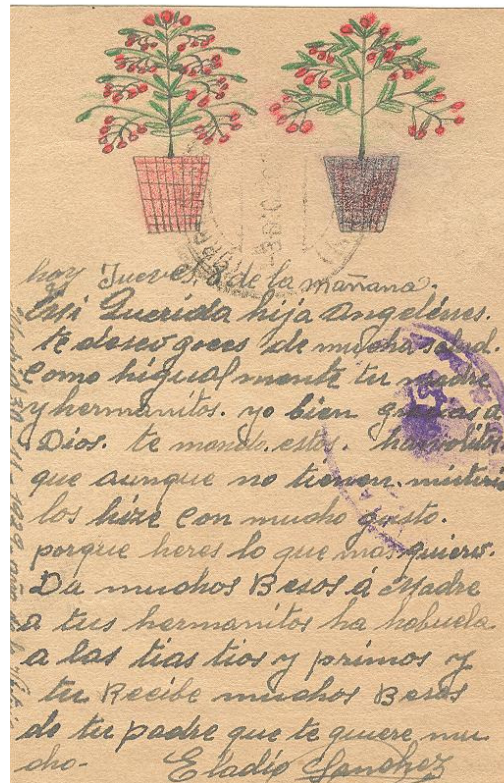 hoy Jueves 8 de la mañana.
Mi Querida hija Angelines.
te deseo goces de mucha salud.
Como higualmente tu madre
y hermanitos. yo bien gracias a
Dios. te mando estos. harvolitos
que aunque no tienen. misterio
los hize con mucho gusto.
porque heres lo que mas quiero.
Da muchos Besos á Madre
a tus hermanitos ha habuela
a las tias tios y primos y
tu Recibe muchos Besos
de tu padre que te quiere mu
cho- Eladio Sanchez